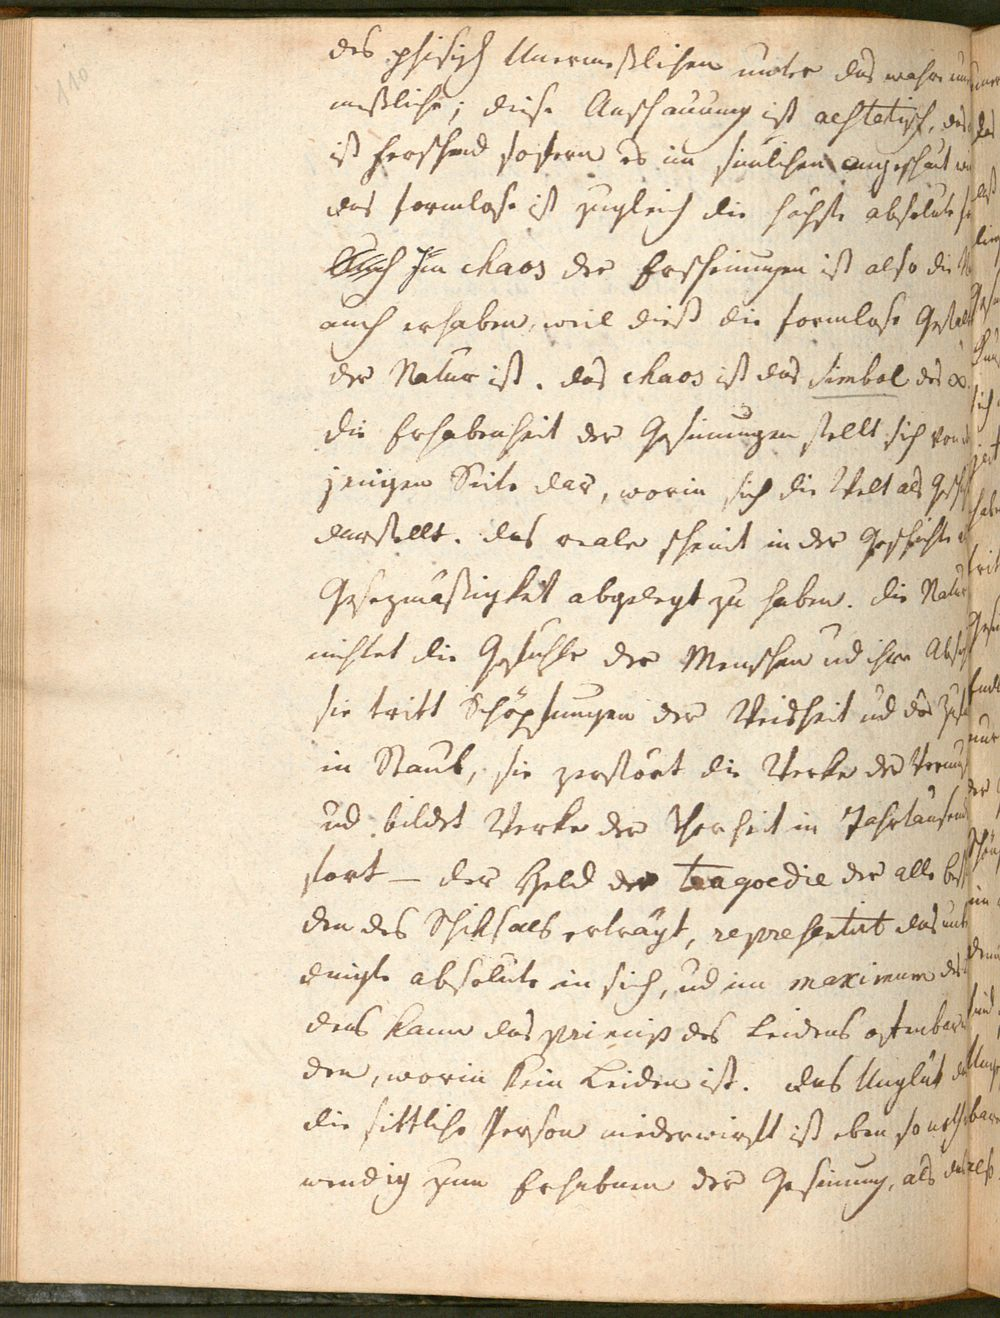 110
des phisisch Unermeßlichen unter das wahre uner
meßliche; diese Anschauung ist aesthetisch, das
ist herschend sofern es im sinlichen angeschaut
das formlose ist zugleich die höchste absolute
Auch Im chaos der Erscheinungen ist also die
auch erhaben, weil dieß die formlose Gestalt
der Natur ist. das chaos ist das simbol des ∞.
die Erhabenheit der Gesinungen stellt sich von
jenigen Seite dar, worin sich die Welt als
darstellt. das reale scheint in der Geschichte
Gesezmäßigkeit abgelegt zu haben. die Natur
nichtet die Gefühle der Menschen ud ihre
sie tritt Schöpfungen der Weisheit ud des
in Staub, sie zerstört die Werke der
ud bildet Werke der Thorheit in Jahrtausend
fort – der Held der tragoedie der alle
den des Schiksals erträgt, represhentirt das
dingte absolute in sich, ud im maximum des
dens kann das princip des Leidens offenbar
den, worin kein Leiden ist. das Unglük
die sittliche Person niederwirft ist eben so noth
wendig zum Erhabnen der Gesinung, als